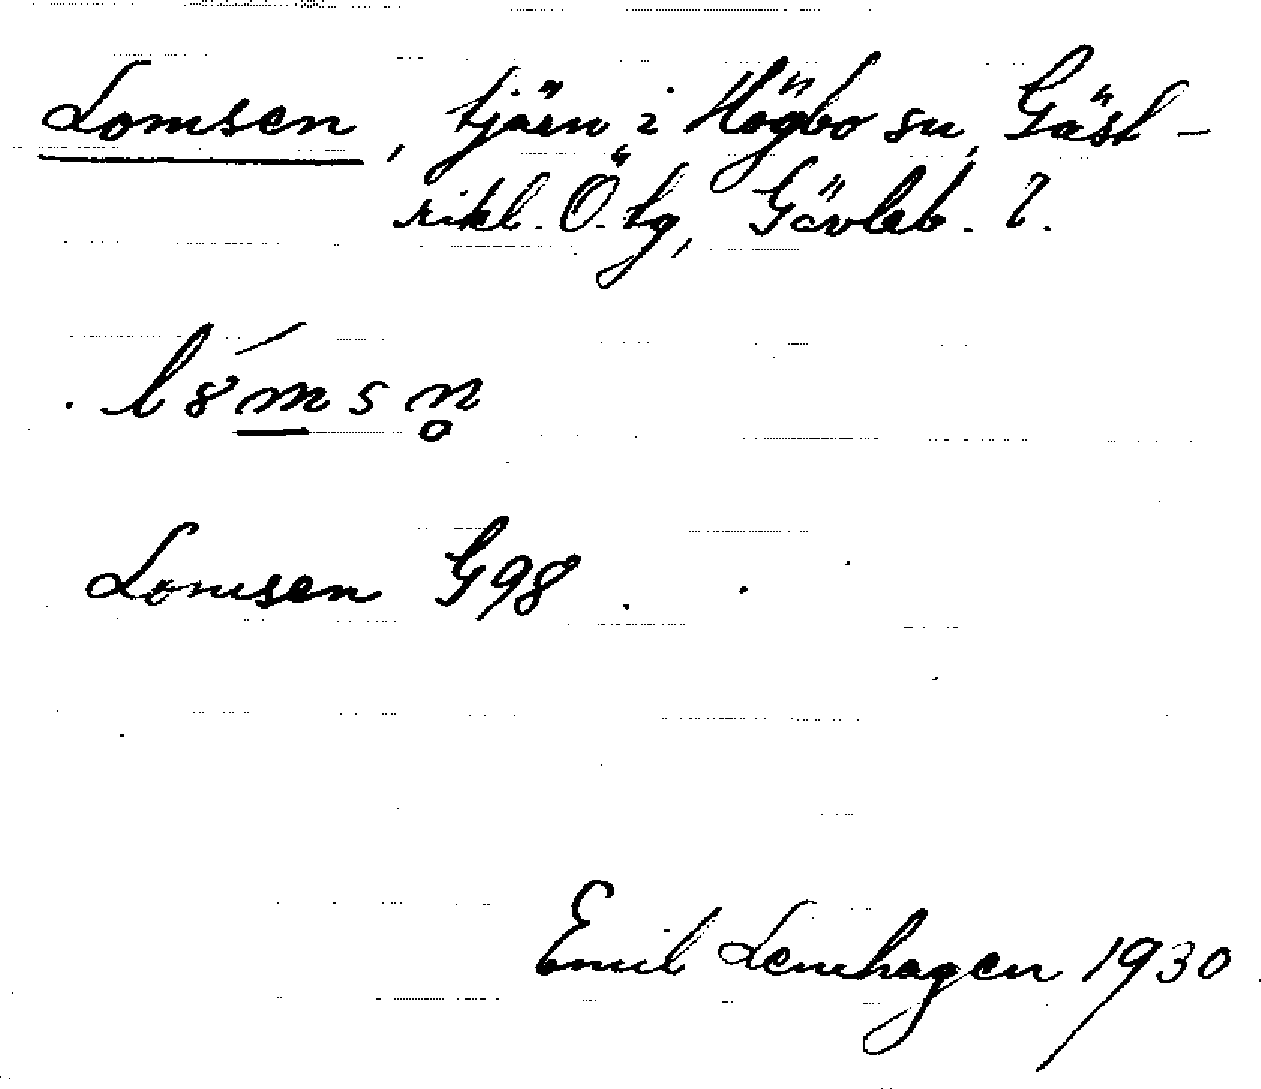 Lomsen, tjärn i Högbo sn, Gäst-
rikl. Ö. tg, Gävleb. l.
l8́msn̥
Lomsen G98
Emil Lenhagen 1930